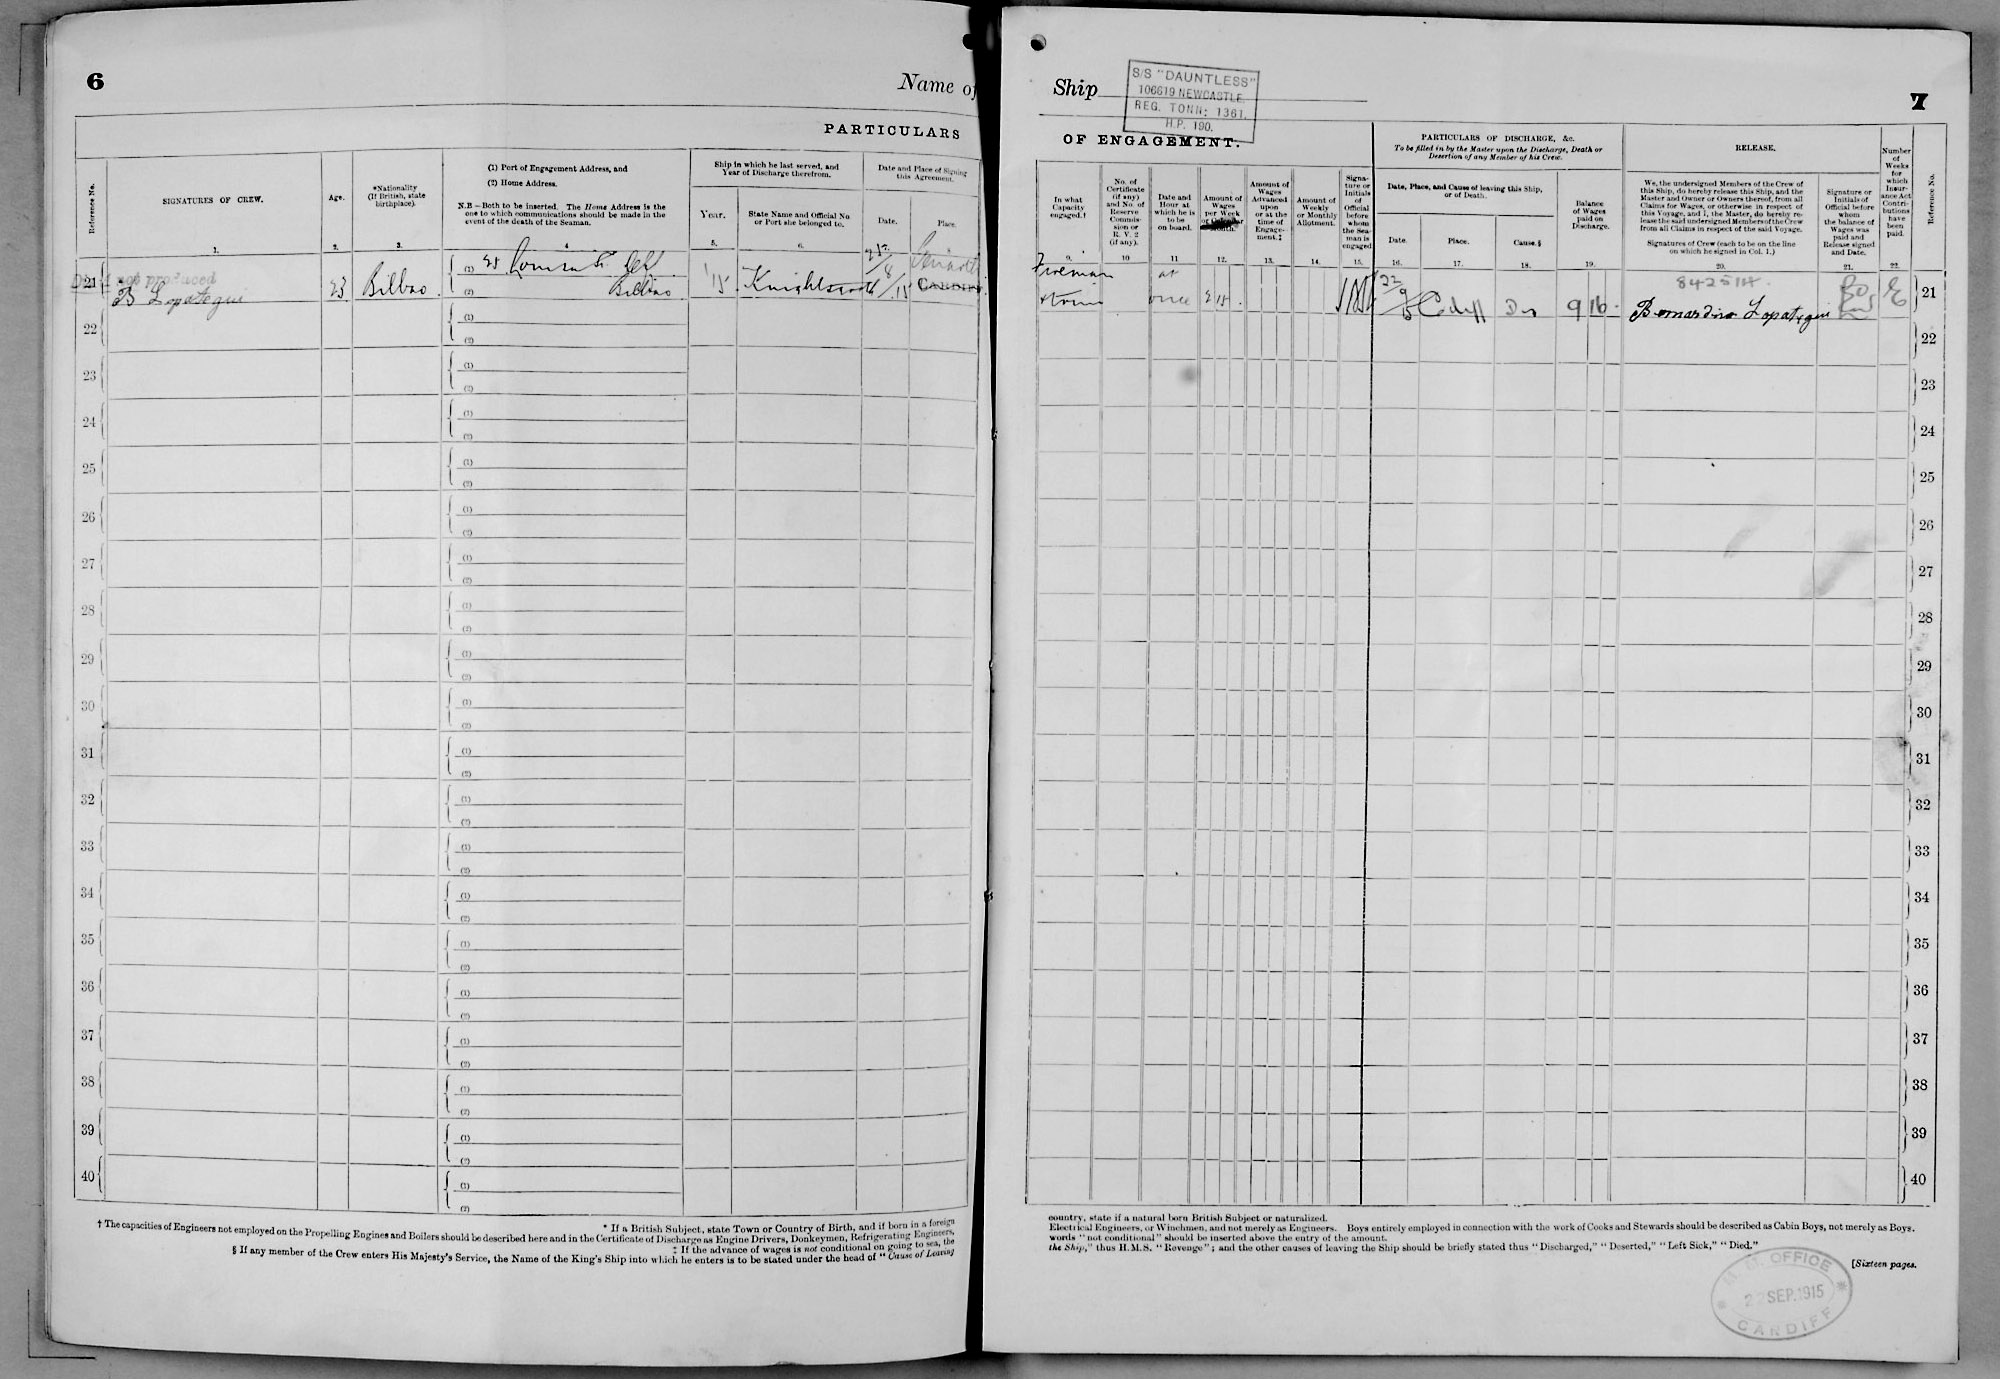 6
Name of
PARTICULARS
Reference No.
SIGNATURES OF CREW.
Age.
*Nationality
(If British, state
birthplace).
(1) Port of Engagement Address, and
(2) Home Address.
N.B.—Both to be inserted. The Home Address is the
one to which communications should be made in the
event of the death of the Seaman.
Ship in which he last served, and
Year of Discharge therefrom.
Year.
State Name and Official No.
or Port she belonged to.
Date and Place of Signing
this Agreement.
Date.
Place.
1. 2. 3. 4 5. 6. 8
21
not produced
B Lopategui
23
Bilbao
(1) 25 Louisa St
(2) Bilbao
15
8/15
CARDIFF
22 (1)
(2)
23 (1)
(2)
24 (1)
(2)
25 (1)
(2)
26 (1)
(2)
27 (1)
(2)
28 (1)
(2)
29 (1)
(2)
30 (1)
(2)
31 (1)
(2)
32 (1)
(2)
33 (1)
(2)
34 (1)
(2)
35 (1)
(2)
36 (1)
(2)
37 (1)
(2)
38 (1)
(2)
39 (1)
(2)
40 (1)
(2)
* If a British Subject, state Town or Country of Birth, and if born in a foreign
† The capacities of Engineers not employed on the Propelling Engines and Boilers should be described here and in the Certificate of Discharge as Engine Drivers, Donkeymen, Refrigerating Engineers,
‡ If the advance of wages is not conditional on going to sea, the
§ If any member of the Crew enters His Majesty's Service, the Name of the King's Ship into which he enters is to be stated under the head of "Cause of Leaving
Ship
S/S "DAUNTLESS"
106619 NEWCASTLE
REG. TONN: 1361.
H.P. 190.
7
OF ENGAGEMENT.
In what
Capacity
engaged.†
No. of
Certificate
(if any)
and No. of
Reserve
Commis-
sion or
R. V. 2
(if any).
Date and
Hour at
which he is
to be
on board.
Amount of
Wages
per Week
or Calendar
Month.
Amount of
Wages
Advanced
upon
or at the
time of
Engage-
ment.‡
Amount of
Weekly
or Monthly
Allotment.
Signa-
ture or
Initials
of
Official
before
whom
the Sea-
man is
engaged
PARTICULARS OF DISCHARGE, &c.
To be filled in by the Master upon the Discharge, Death or
Desertion of any Member of his Crew.
Date, Place, and Cause of leaving this Ship,
or of Death.
Date.
Place.
Cause.§
Balance
of Wages
paid on
Discharge.
RELEASE.
We, the undersigned Members of the Crew of
this Ship, do hereby release this Ship, and the
Master and Owner or Owners thereof, from all
Claims for Wages, or otherwise in respect of
this Voyage, and I, the Master, do hereby re-
lease the said undersigned Members of the Crew
from all Claims in respect of the said Voyage.
Signatures of Crew (each to be on the line
on which he signed in Col. 1.)
Signature or
Initials of
Official before
whom
the balance of
Wages was
paid and
Release signed
and Date.
Number
of
Weeks
for
which
Insur-
ance Act
Contri-
butions
have
been
paid.
Reference No.
9. 10 11 12. 13. 14. 15. 16. 17. 18. 19. 20. 21. 22.
Fireman
at
once
22
9
15
Cdiff
Dis
9 16
842514
Bernardino Lopategui
21
22
23
24
25
26
27
28
29
30
31
32
33
34
35
36
37
38
39
40
country, state if a natural born British Subject or naturalized.
Electrical Engineers, or Winchmen, and not merely as Engineers. Boys entirely employed in connection with the work of Cooks and Stewards should be described as Cabin Boys, not merely as Boys.
words "not conditional" should be inserted above the entry of the amount.
the Ship," thus H.M.S. "Revenge"; and the other causes of leaving the Ship should be briefly stated thus "Discharged," "Deserted," "Left Sick," "Died."
[Sixteen pages.
M. M. OFFICE
22 SEP. 1915
CARDIFF